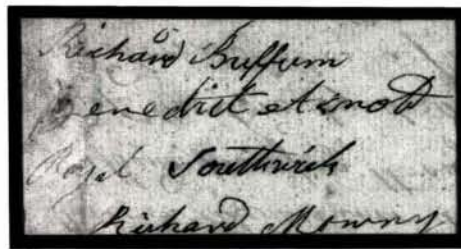 Richard Buffum
Benedict Arnold
Royal Southwick
Richard Mowry